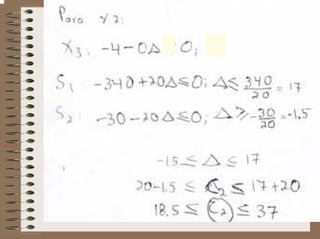 Para x2:
X3: -4-0Δ : 0;
S1: -340+20Δ≤0; Δ≤ 340/20 = 17
S2: -30-20Δ≤0; Δ≥ -30/20 = -1.5
-1.5 ≤ Δ ≤ 17
20-1.5 ≤ C2 ≤ 17+20
18.5 ≤ C2 ≤ 37